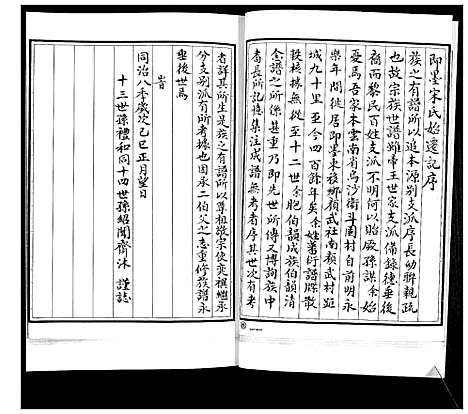 即墨宋氏始遷記序
族之有譜所以追本源別支派序長幼聯親疏
也故宗族世譜雖帝王世家支派備錄德垂後
裔而黎民百姓支派不明何以貽厥孫謀余始
憂焉吾家本雲南省烏沙衛斗閣村自前明永
樂年間徙居即墨東移鄉顏武社南顏武村距
城九十里至今四百餘年矣余姓蕃衍譜牒散
軼稽據無從至十二世余胞伯韻成族伯韻清
念譜之所係甚重乃即先世所傳又博詢族中
耆長所記憶集注成譜無考者序其世次有考
者詳其所生是族之有譜所以尊祖敬宗使奕禩繼承
分支別派有所考據也因承二伯父之志重修族譜永
垂後世焉
旹
同治八季歲次己巳正月望日
十三世孫禮和同十四世孫紹聞齋沐 謹誌